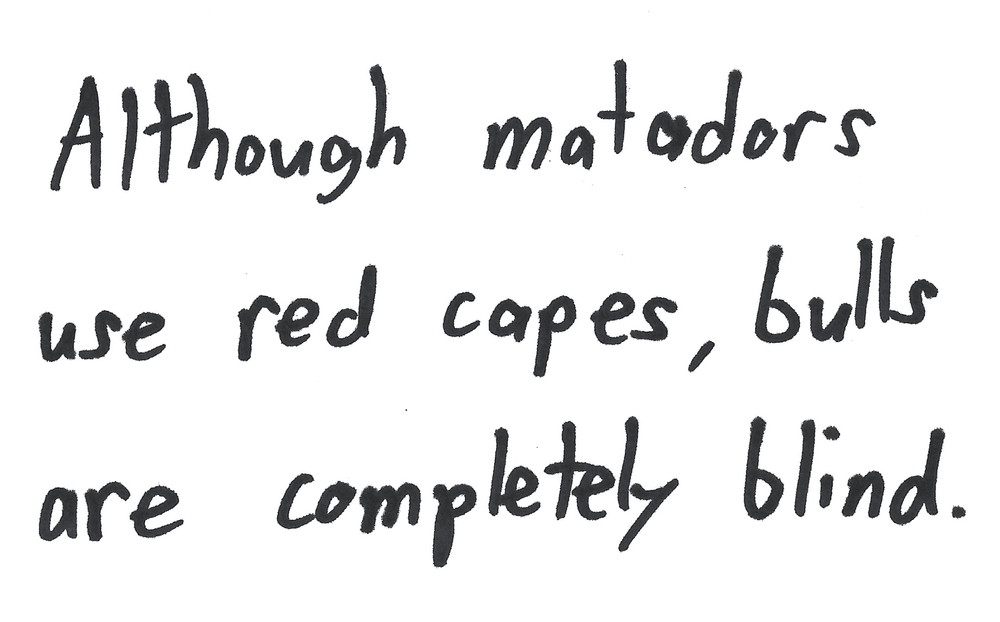 Although matadors
use red capes, bulls
are completely blind.